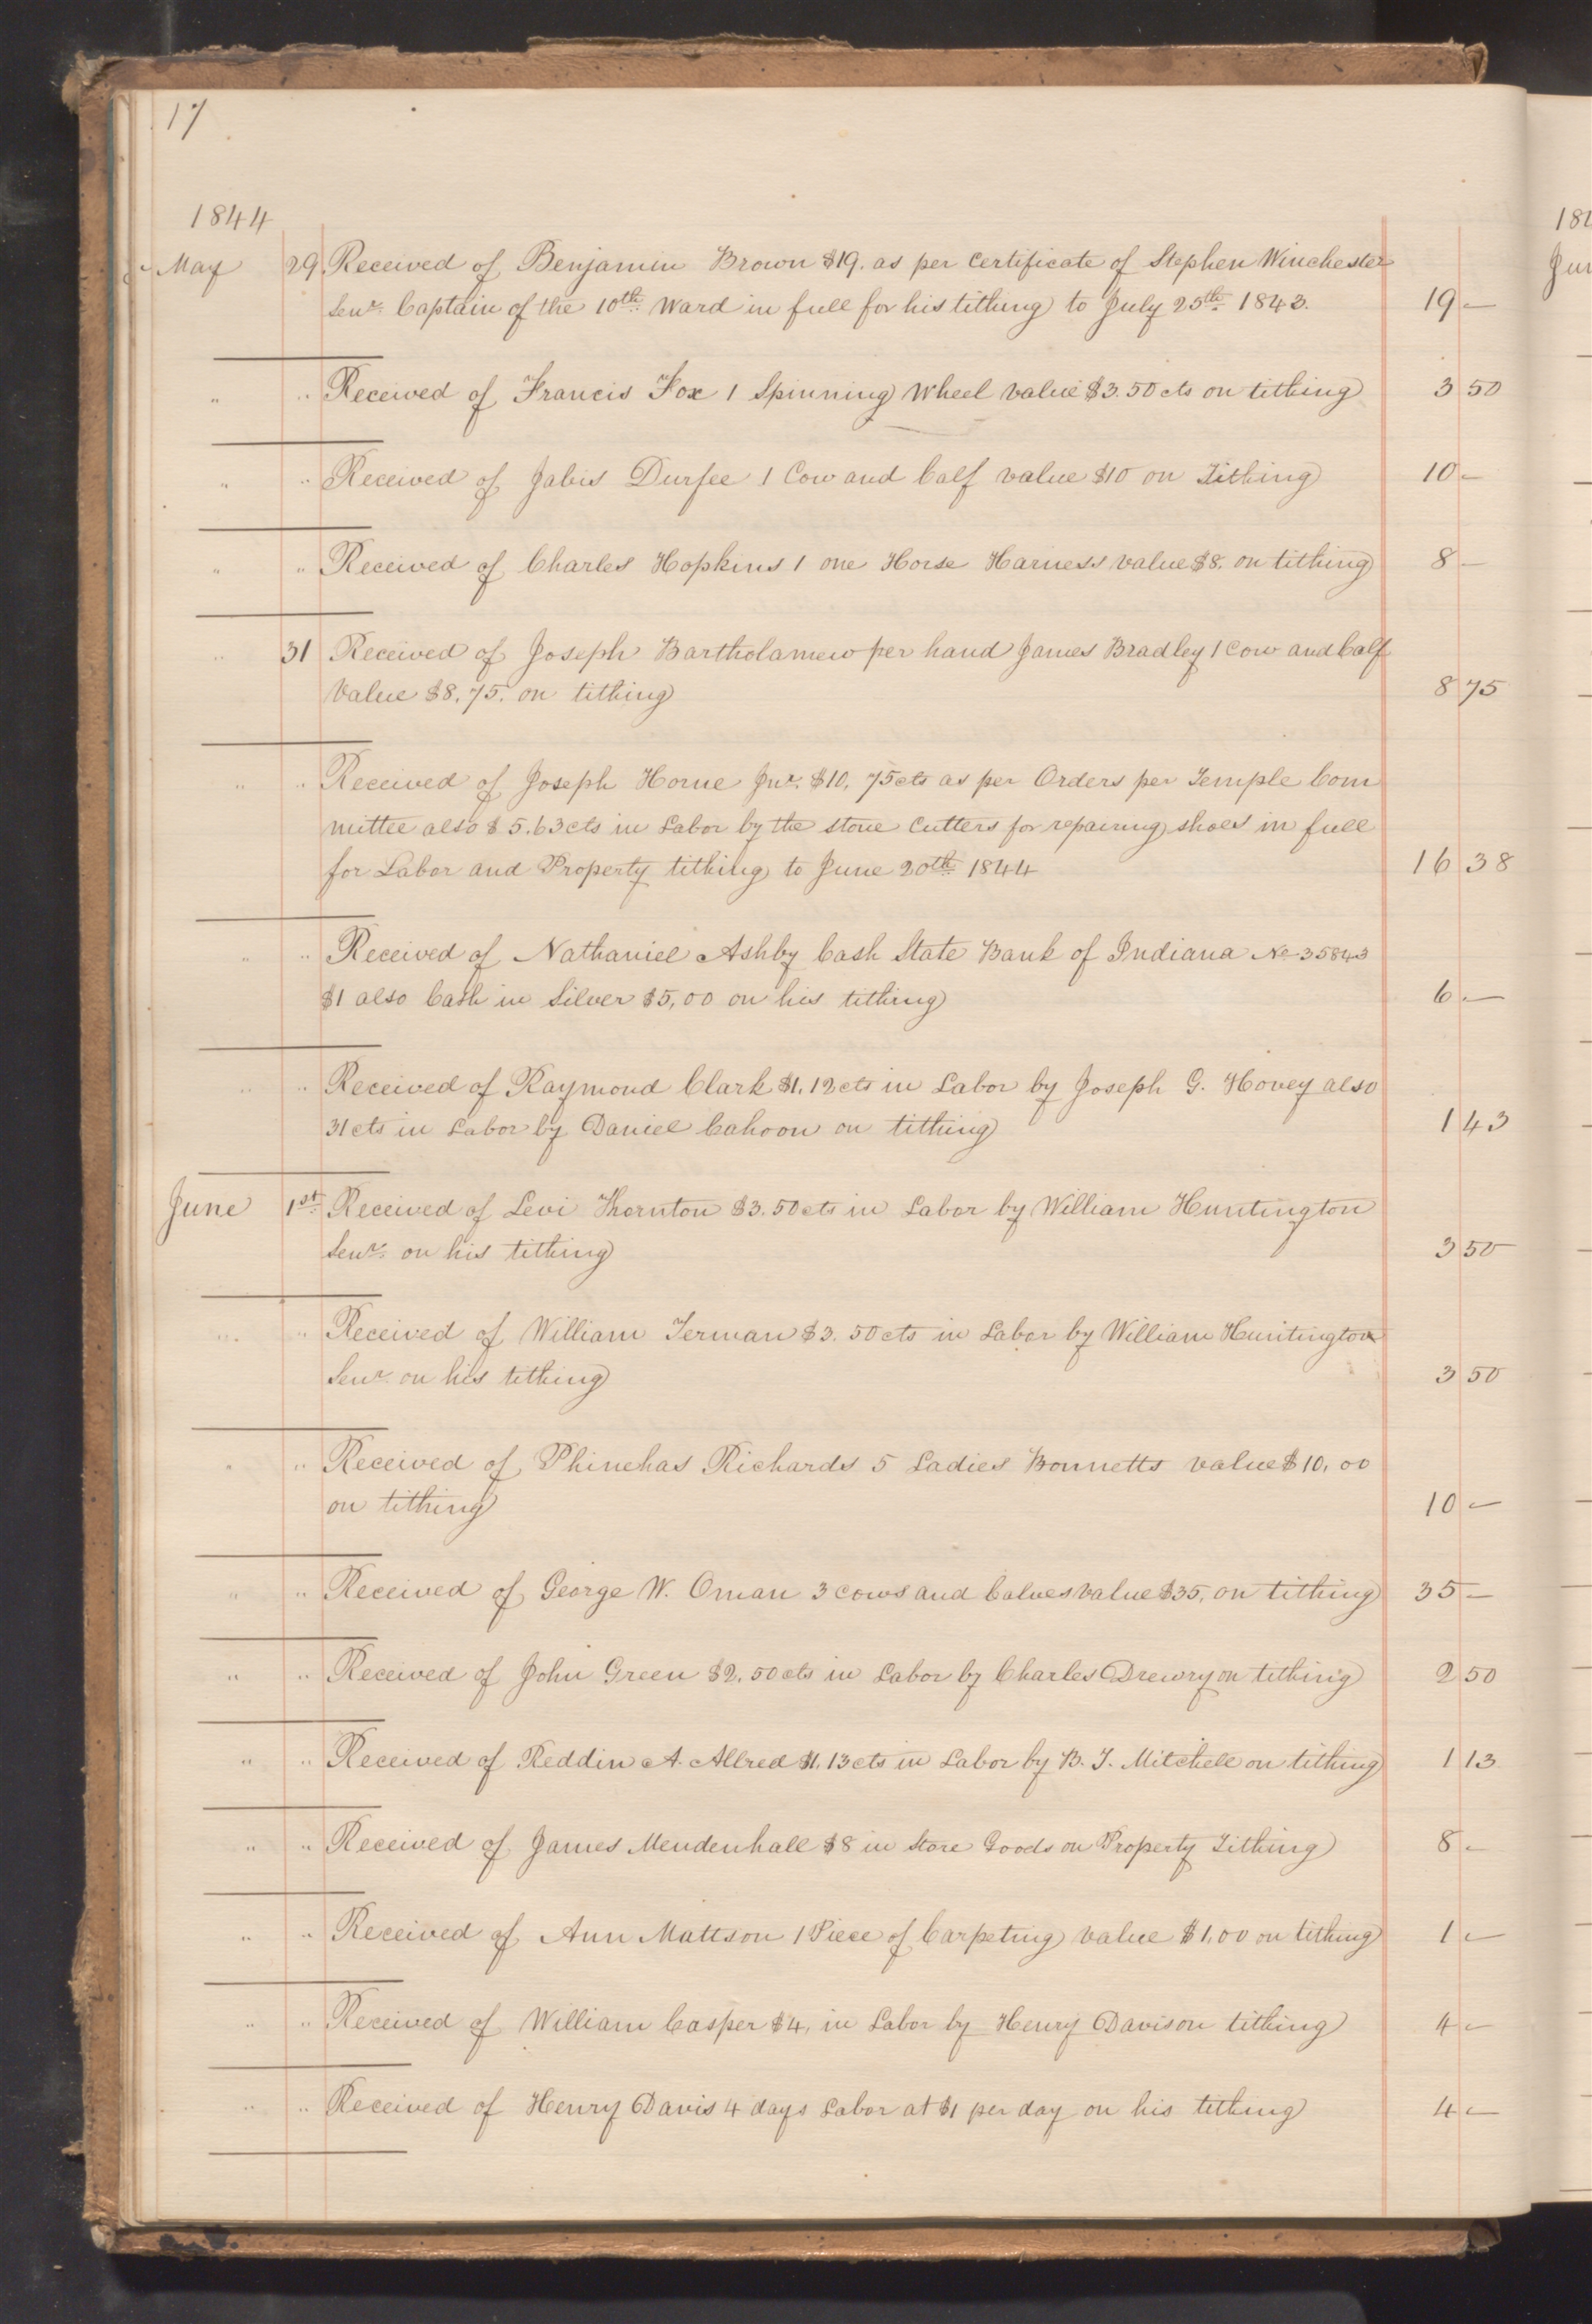 17
1844
May 29 Received of Benjamin Brown $19. as per Certificate of Stephen Winchester
Senr. Captain of the 10th Ward in full for his tithing to July 25th 1843. 19 —
" " Received of Francis Fox 1 Spinning Wheel value $3.50 cts on tithing 3 50
" " Received of Jabis Durfee 1 Cow and Calf value $10 on Tithing 10 —
" " Received of Charles Hopkins 1 one Horse Harness value $8. on tithing 8 —
" 31 Received of Joseph Bartholamew per hand James Bradley 1 Cow and Calf
Value $8.75. on tithing 8 75
" " Received of Joseph Horne Jnr. $10, 75 cts as per Orders per Temple Com
mittee also $5.63 cts in Labor by the stone Cutters for repairing shoes in full
for Labor and Property tithing to June 20th 1844 16 38
" " Received of Nathaniel Ashby Cash State Bank of Indiana No 35843
$1 also Cash in Silver $5,00 on his tithing 6 —
" " Received of Raymond Clark $1.12 cts in Labor by Joseph G. Hovey also
31 cts in Labor by Daniel Cahoon on tithing 1 43
June 1st Received of Levi Thornton $3.50 cts in Labor by William Huntington
Senr. on his tithing 3 50
" " Received of William Terman $3.50 cts in Labor by William Huntington
Senr. on his tithing 3 50
" " Received of Phinehas Richards 5 Ladies Bonnetts value $10,00
on tithing 10 —
" " Received of George W. Oman 3 Cows and Calves value $35, on tithing 35 —
" " Received of John Green $2.50 cts in Labor by Charles Drewry on tithing 2 50
" " Received of Reddin A. Allred $1.13 cts in Labor by B. T. Mitchell on tithing 1 13
" " Received of James Mendenhall $8 in Store Goods on Property Tithing 8 —
" " Received of Ann Mattson 1 Piece of Carpeting value $1.00 on tithing 1 —
" " Received of William Casper $4, in Labor by Henry Davison tithing 4 —
" " Received of Henry Davis 4 days Labor at $1 per day on his tithing 4 —